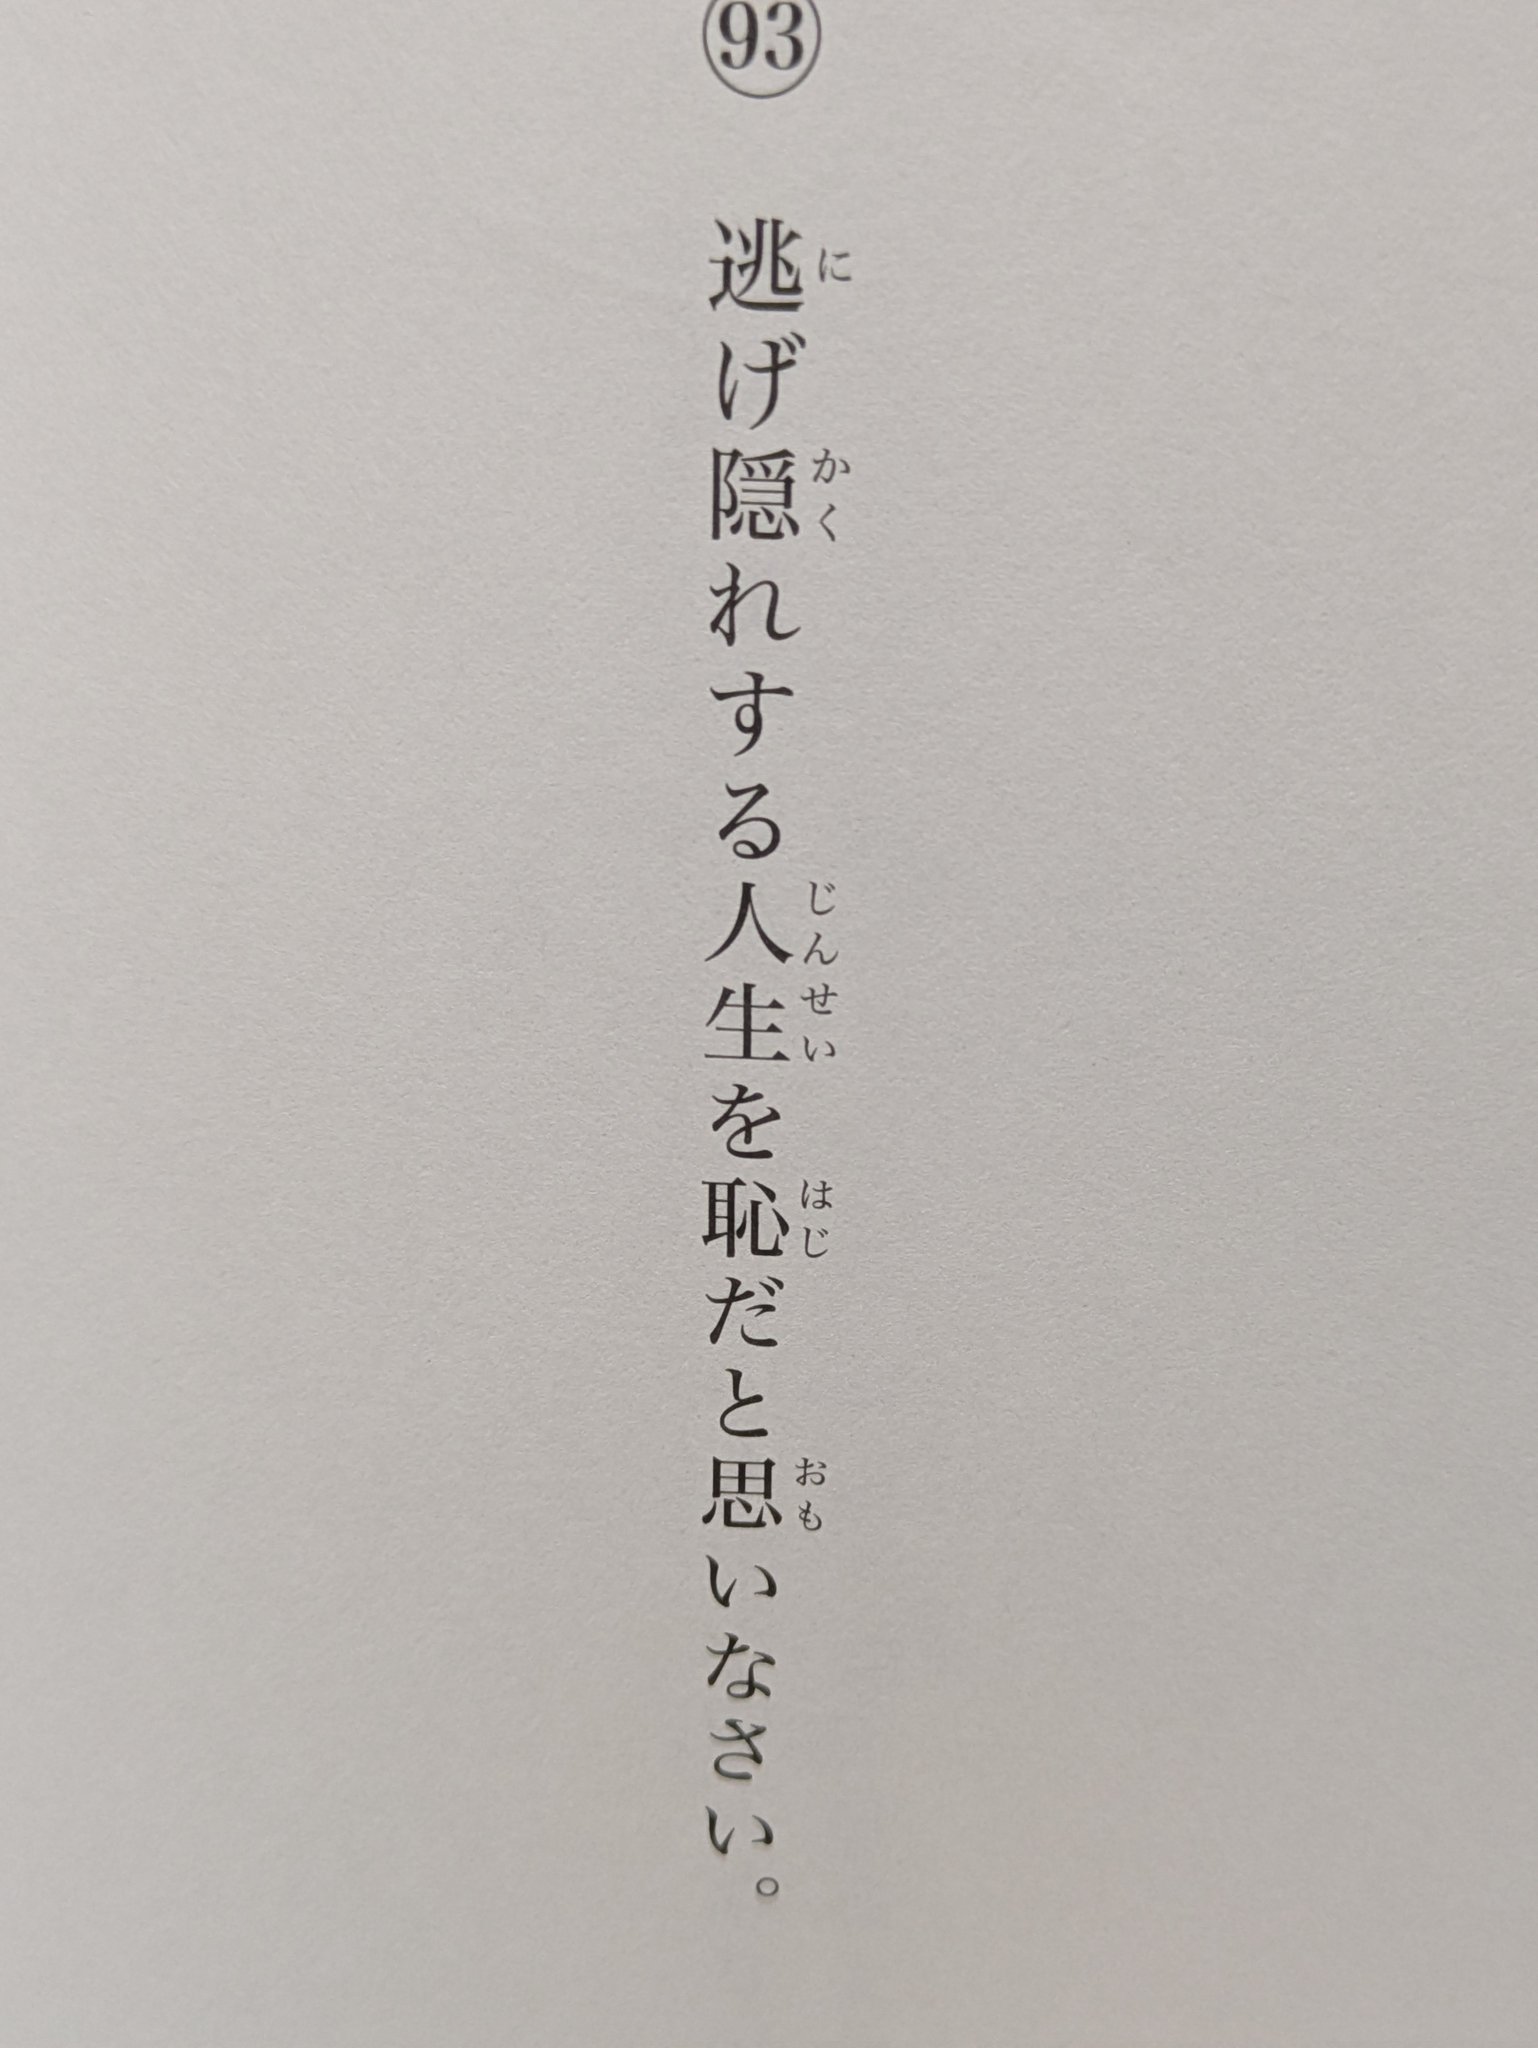 93
逃げ隠れする人生を恥だと思いなさい。
に かく じんせい はじ おも